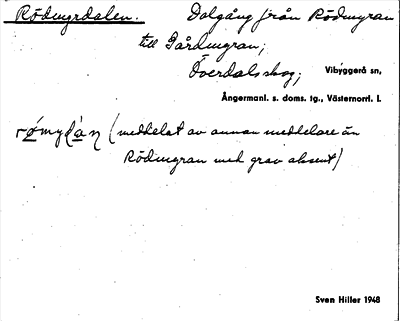 Rödmyrdalen. Dalgång från Rödmyran
till Gårdmyran;
Överdalsskog; Vibyggerå sn,
Ångermanl. s. doms. tg., Västernorrl. l.
(meddelat av annan meddelare än
Rödmyran med grav aksent)
Sven Hiller 1948